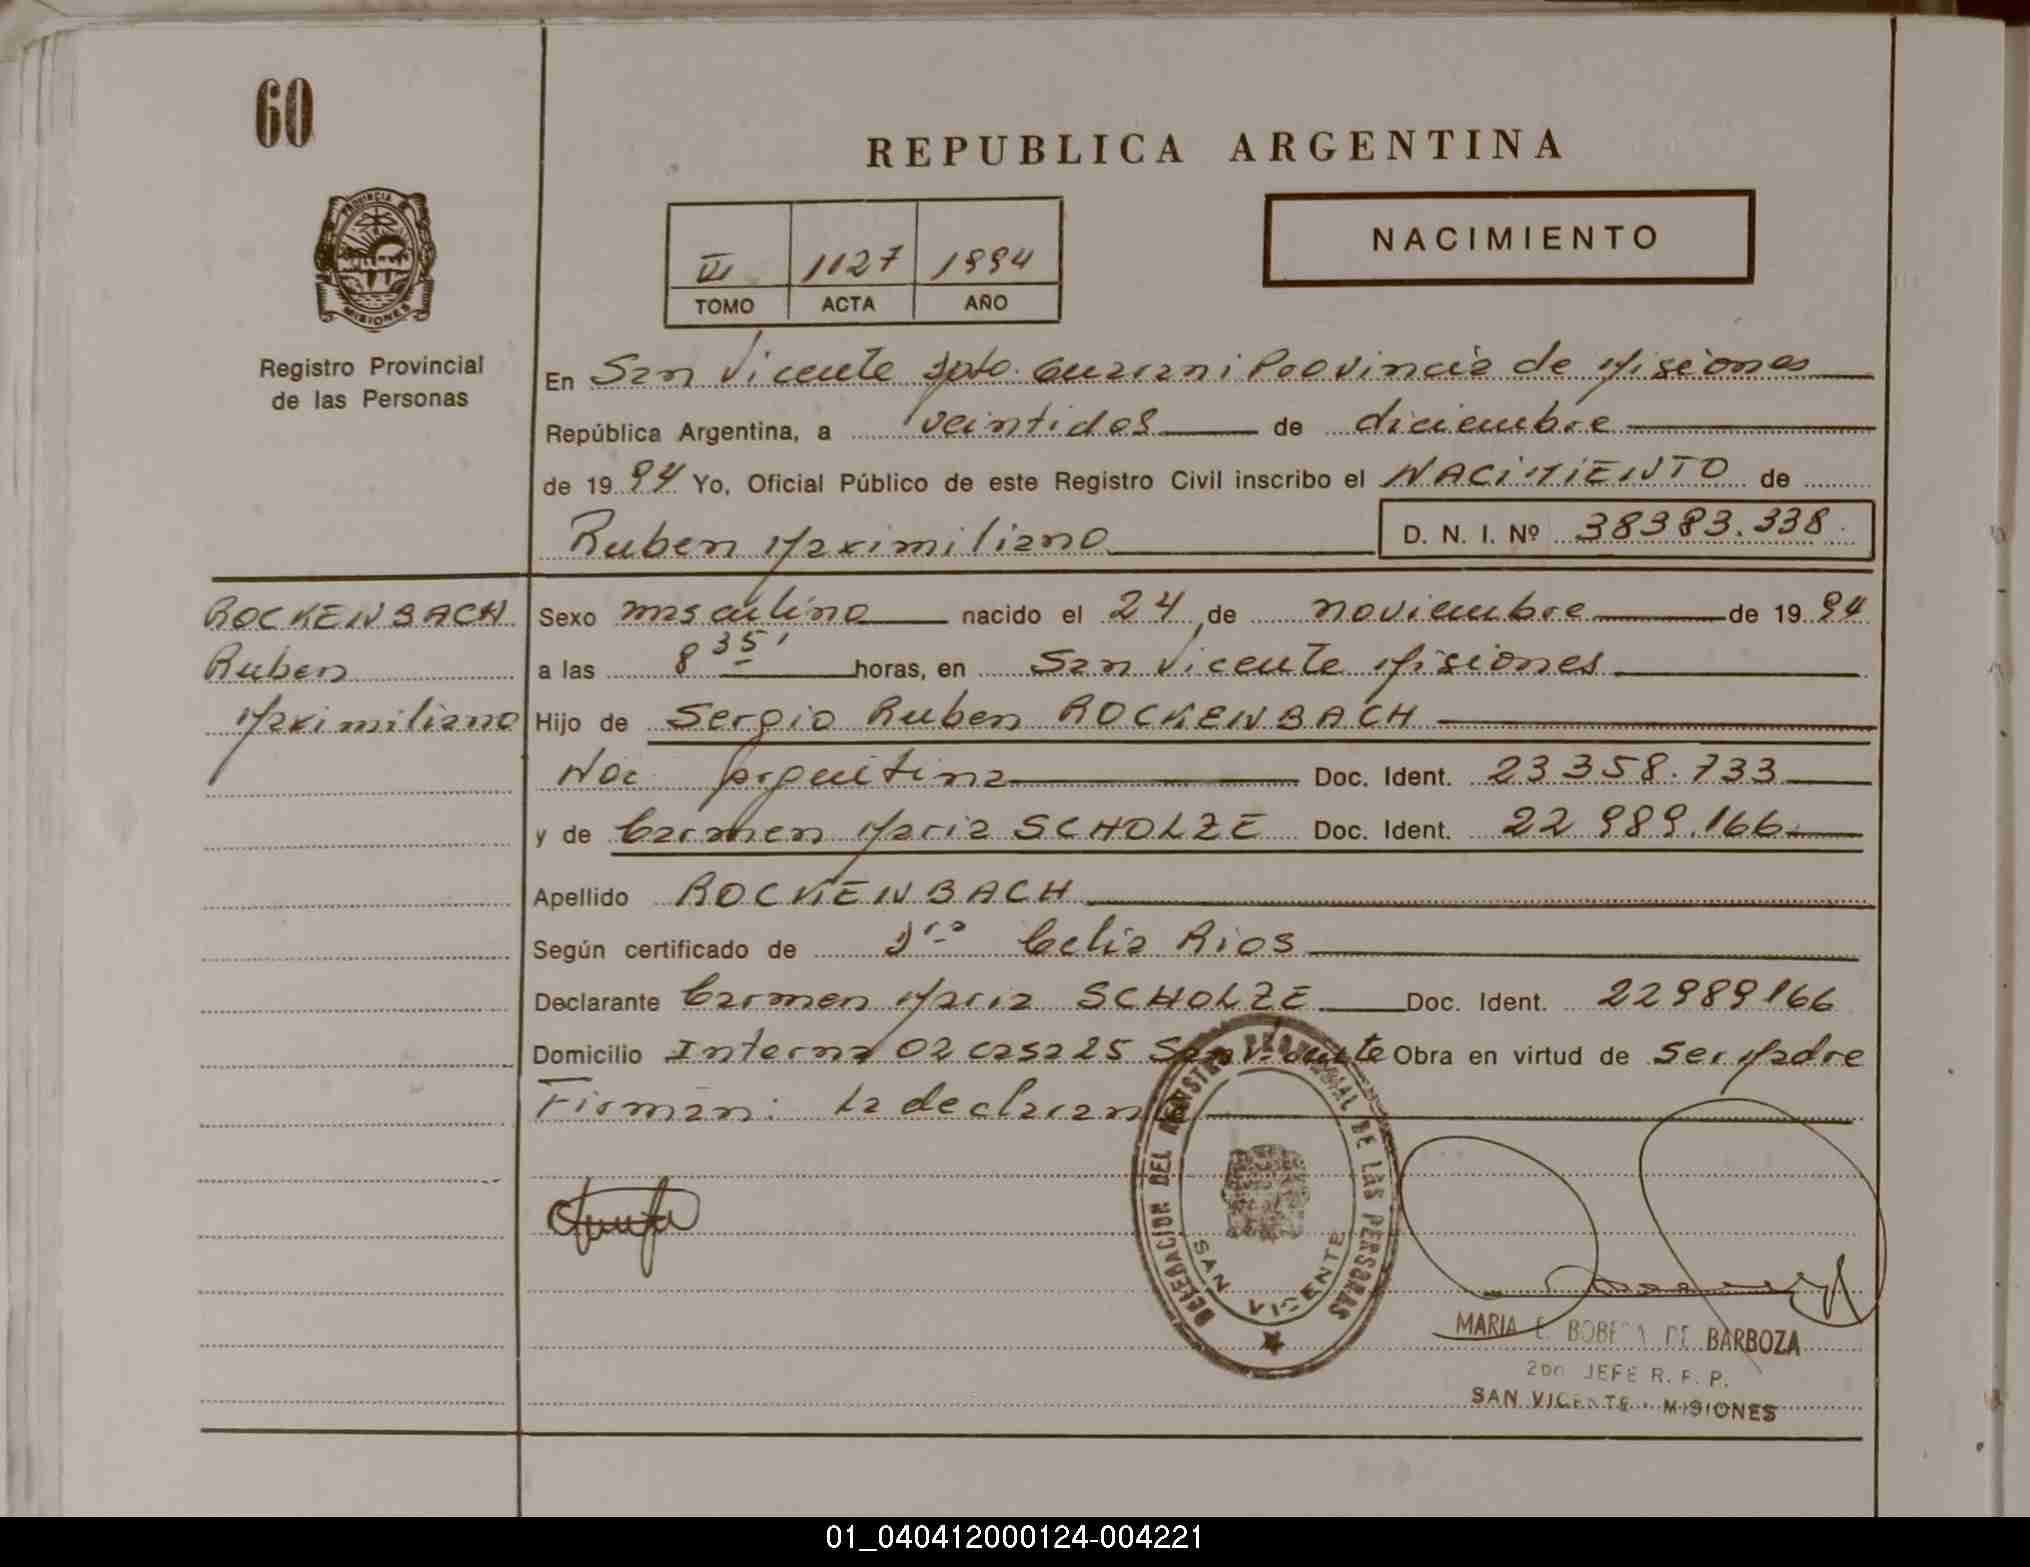 60
REPUBLICA ARGENTINA
PROVINCIA DE MISIONES
Registro Provincial
de las Personas
NACIMIENTO
VI 1127 1994
TOMO ACTA AÑO
En San Vicente Dpto. Guarani Provincia de Misiones
República Argentina, a veintidos de diciembre
de 1994 Yo, Oficial Público de este Registro Civil inscribo el NACIMIENTO de
Ruben Maximiliano D. N. I. Nº 38383.338.
ROCKENBACH
Ruben
Maximiliano
Sexo masculino nacido el 24 de noviembre de 1994
a las 8 35' horas, en San Vicente Misiones
Hijo de Sergio Ruben ROCKENBACH
Nac. Argentina Doc. Ident. 23 358.733
y de Carmen Maria SCHOLZE Doc. Ident. 22 989.166
Apellido ROCKENBACH
Según certificado de Dra Celia Rios
Declarante Carmen Maria SCHOLZE Doc. Ident. 22989166
Domicilio Interna 02 casa 25 San Vicente Obra en virtud de ser Madre
Firman: La declaran
DELEGACION DEL REGISTRO PROVINCIAL DE LAS PERSONAS
SAN VICENTE
MARIA E. DE BARBOZA
2do JEFE R. P. P.
SAN VICENTE - MISIONES
01_040412000124-004221